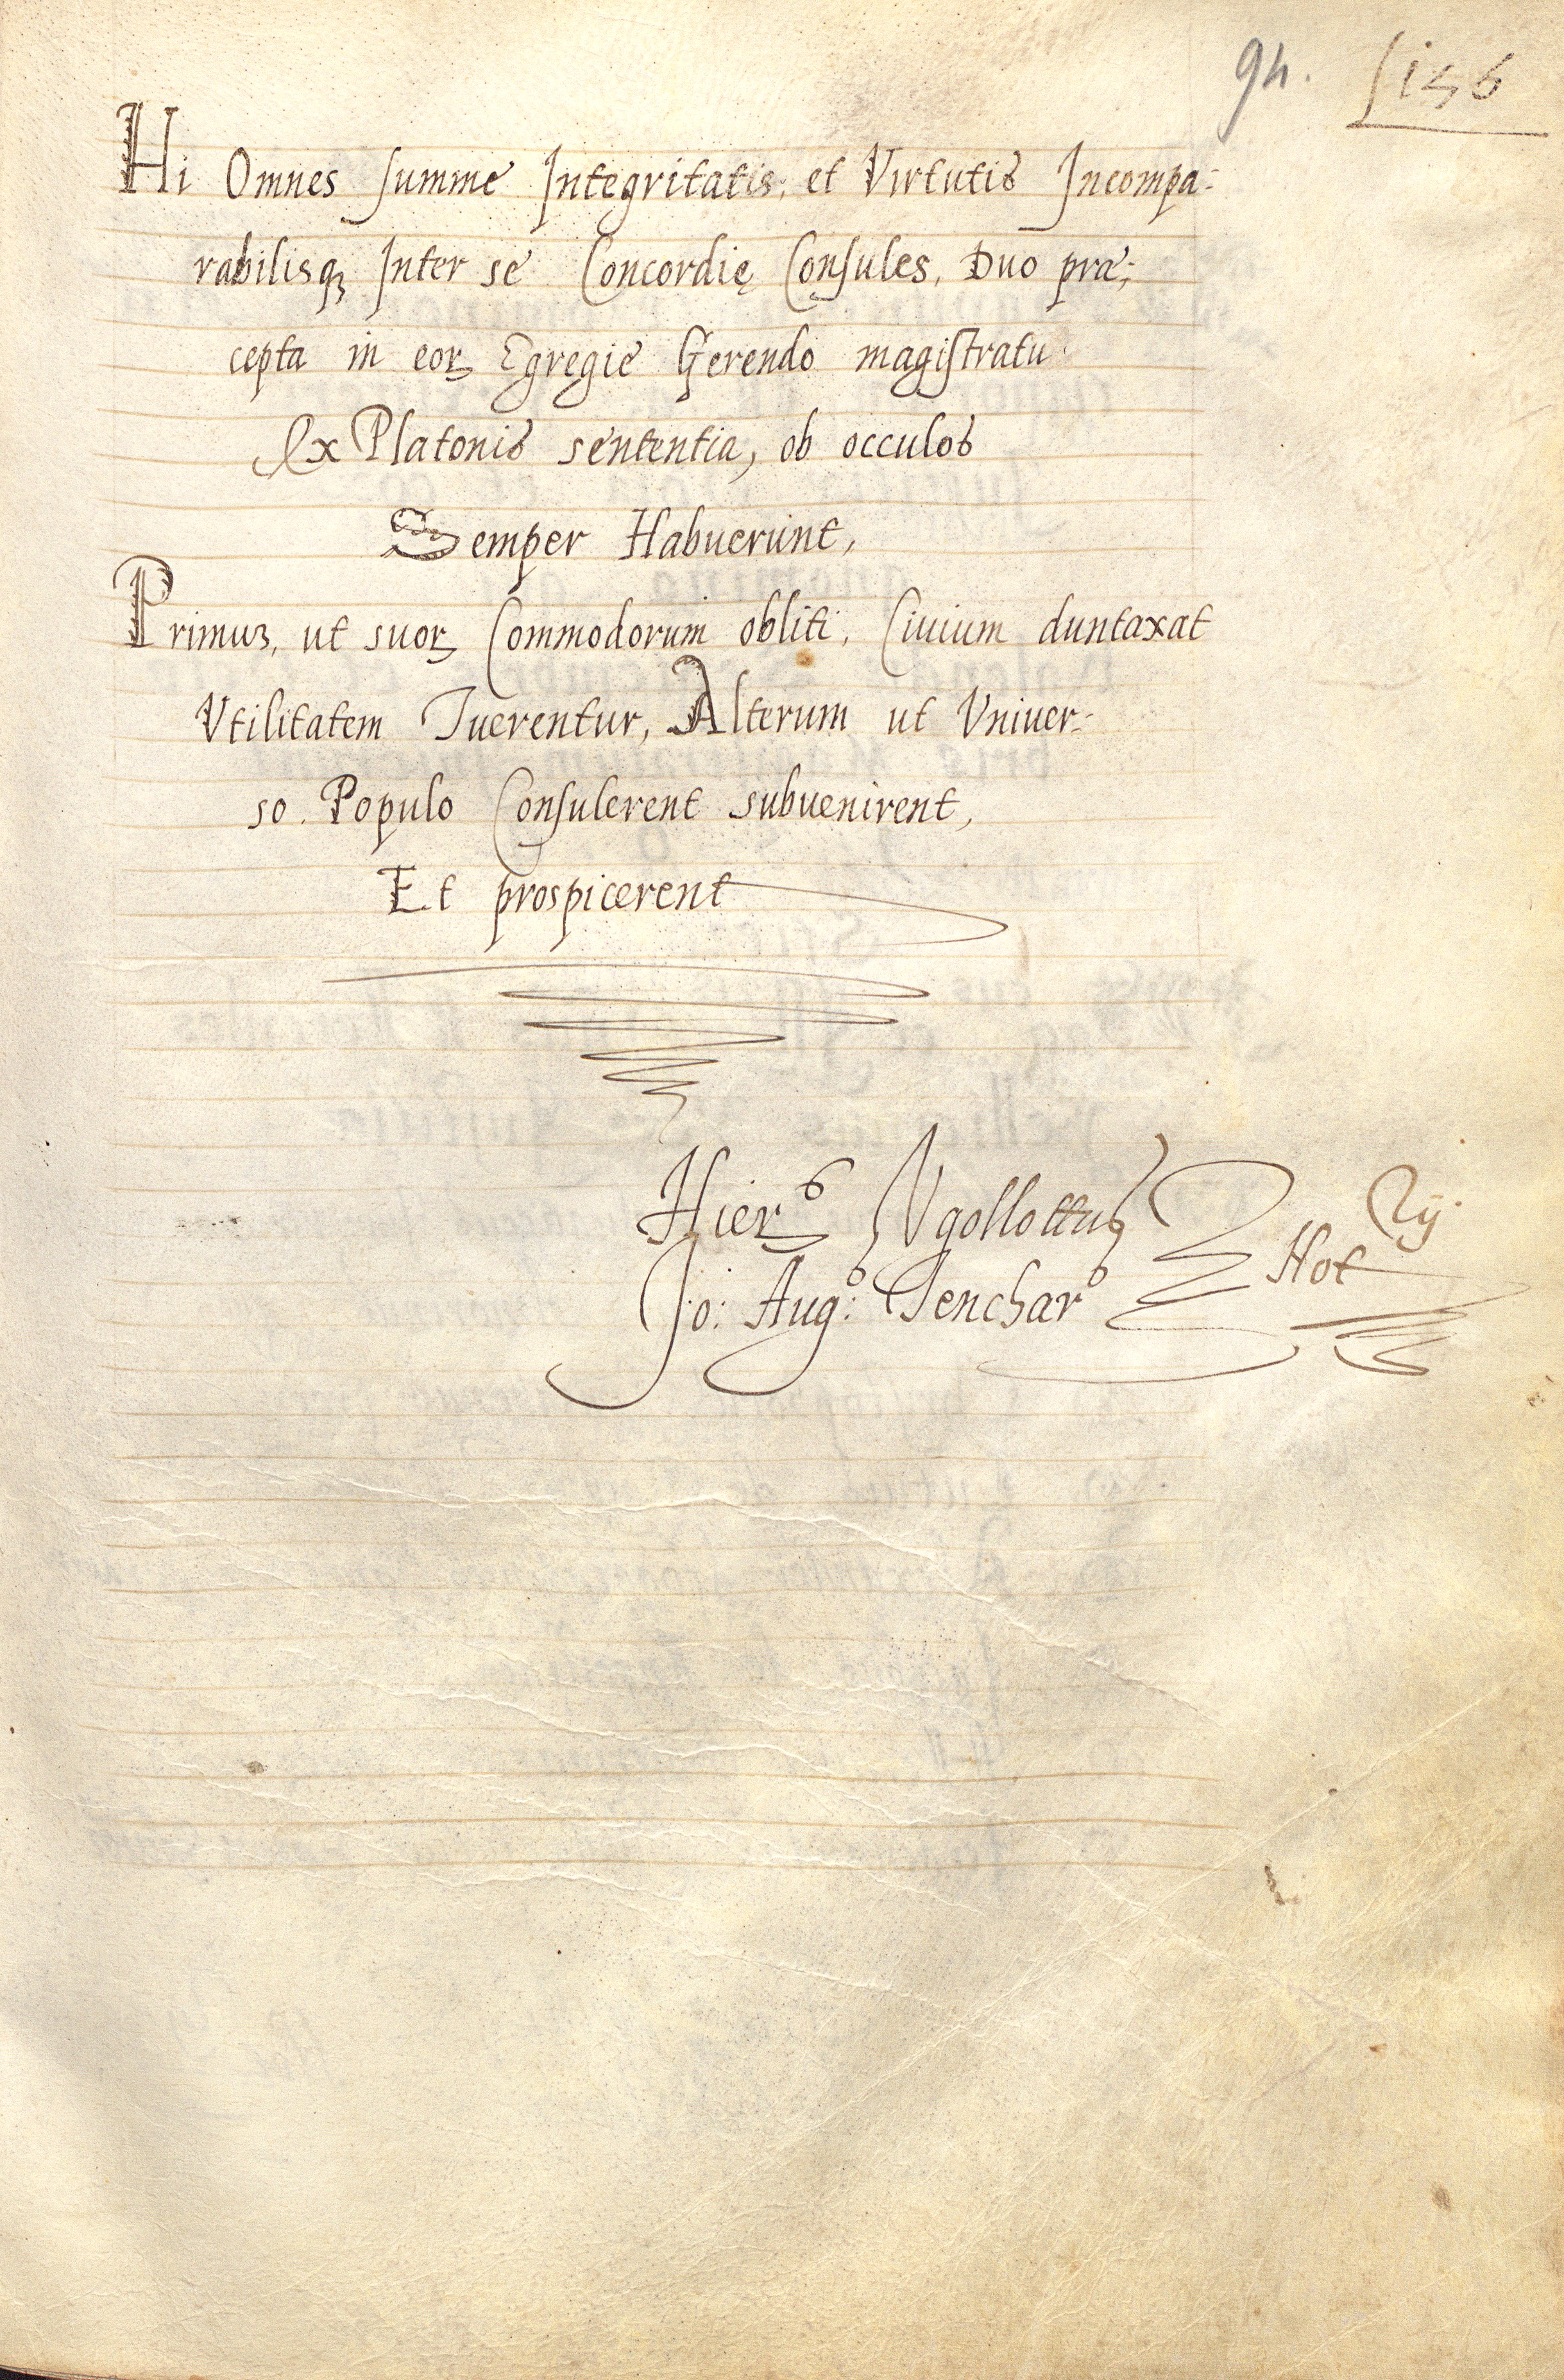 94.
Hi Omnes summe Integritatis, et Virtutis Incompa:
rabilisqꝫ Inter se Concordię Consules, Duo præ:
cepta in eoꝝ Egregie Gerendo magistratu
Ex Platonis sententia, ob occulos
Semper Habuerunt,
Primuꝫ, ut suoꝝ Commodorum obliti, Ciuium duntaxat
Vtilitatem Tuerentur, Alterum ut Vniuer:
so Populo Consulerent subuenirent,
Et prospicerent
Hierˢ Vgollottus
Jo: Augˢ: Sencharˢ
Not
rij